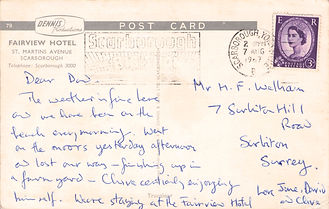 79
DENNIS
Productions
POST CARD
FAIRVIEW HOTEL
ST. MARTINS AVENUE
SCARBOROUGH
Telephone: Scarborough 3000
Scarborough
SCARBOROUGH
2
7 AUG
196
E R
3D
Dear Dad.
The weather is fine here
and we have been on the
beach every morning. Went
on the moors yesterday afternoon
and lost our way - finishing up in
a farm yard - Clive certainly enjoying
himself. We're staying at the Fairview Hotel
Mr H. F. Welham
7 Surbiton Hill
Road
Surbiton
Surrey.
Love June, David
and Clive